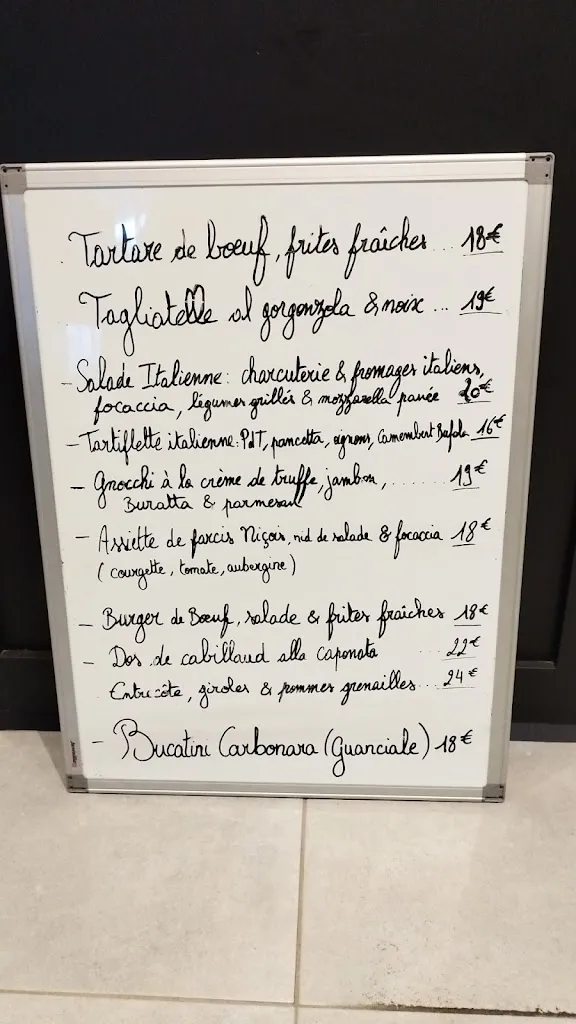 Tartare de bœuf, frites fraîches ... 18€
Tagliatelle al gorgonzola & noix ... 19€
- Salade Italienne : charcuterie & fromages italiens,
focaccia, légumes grillés & mozzarella panée 20€
- Tartiflette italienne : PdT, pancetta, oignons, Camembert Bufala 16€
- Gnocchi à la crème de truffe, jambon, ....... 19€
Buratta & parmesan
- Assiette de farcis Niçois, nid de salade & focaccia 18€
(courgette, tomate, aubergine)
- Burger de Bœuf, salade & frites fraîches 18€
- Dos de cabillaud alla caponata 22€
Entrecôte, giroles & pommes grenailles ... 24€
- Bucatini Carbonara (Guanciale) 18€